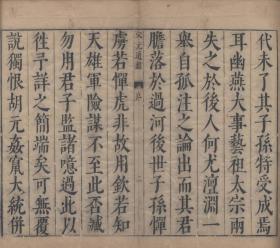 代未了其子孫特受成焉
耳幽燕大事藝祖太宗兩
失之於後人何尤澶淵一
舉自孤注之論出而其君
膽落於過河後世子孫
宋元通鑑 序 二
虜若憚虎非故用欽若知
天雄軍險謀不至此否臧
勿用君子監諸噫過此以
徃予詳之簡端矣可無覆
說獨恨胡元姦竄大統併